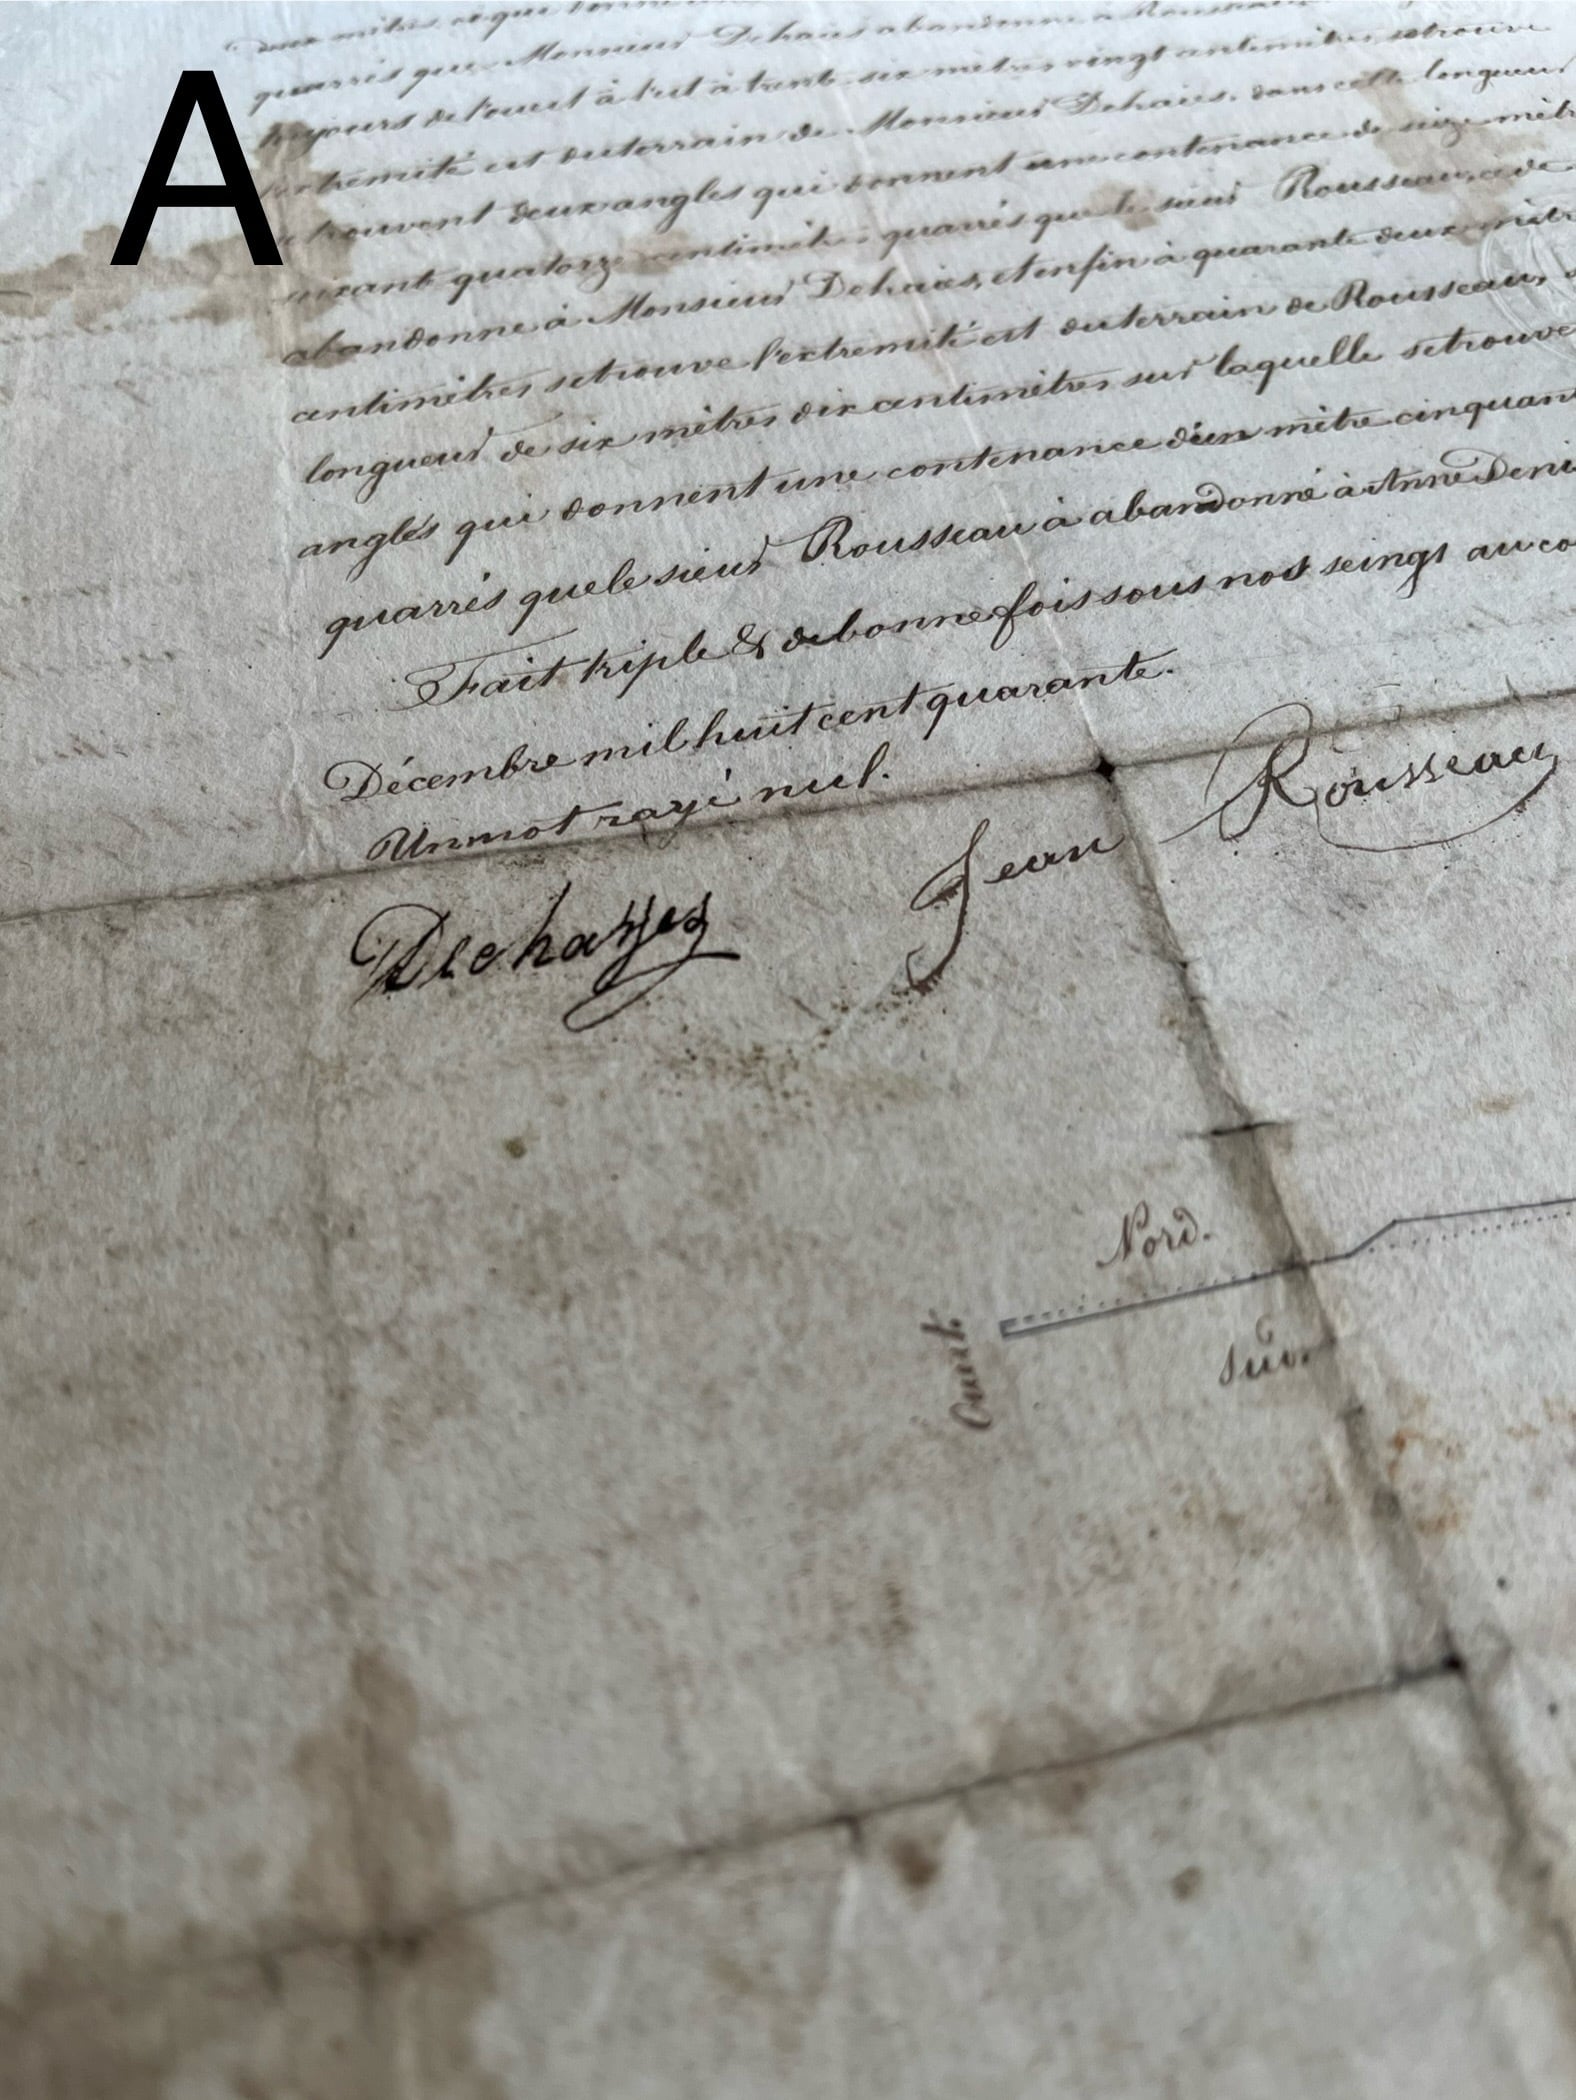 A
quarrés que Monsieur Dehaies abandonne à Rousseau
toujours de l'ouest à l'est à trente six mètres vingt centimètres se trouve
l'extremité est du terrain de Monsieur Dehaies, dans cette longueur
se trouvent deux angles qui donnent une contenance de seize mètres
soixante quatorze centimètres quarrés que le sieur Rousseau, cède
abandonne à Monsieur Dehaies, et enfin à quarante deux mètres
centimètres se trouve l'extremité est du terrain de Rousseau,
longueur de six mètres dix centimètres sur laquelle se trouve
anglés qui donnent une contenance d'un mètre cinquant
quarrés que le sieur Rousseau à abandonné à Anne Deni
Fait triple & de bonne fois sous nos seings au co
Décembre mil huit cent quarante.
Un mot rayé nul.
Jean Rousseau
Dechayes
Nord.
Ouest
Sud.